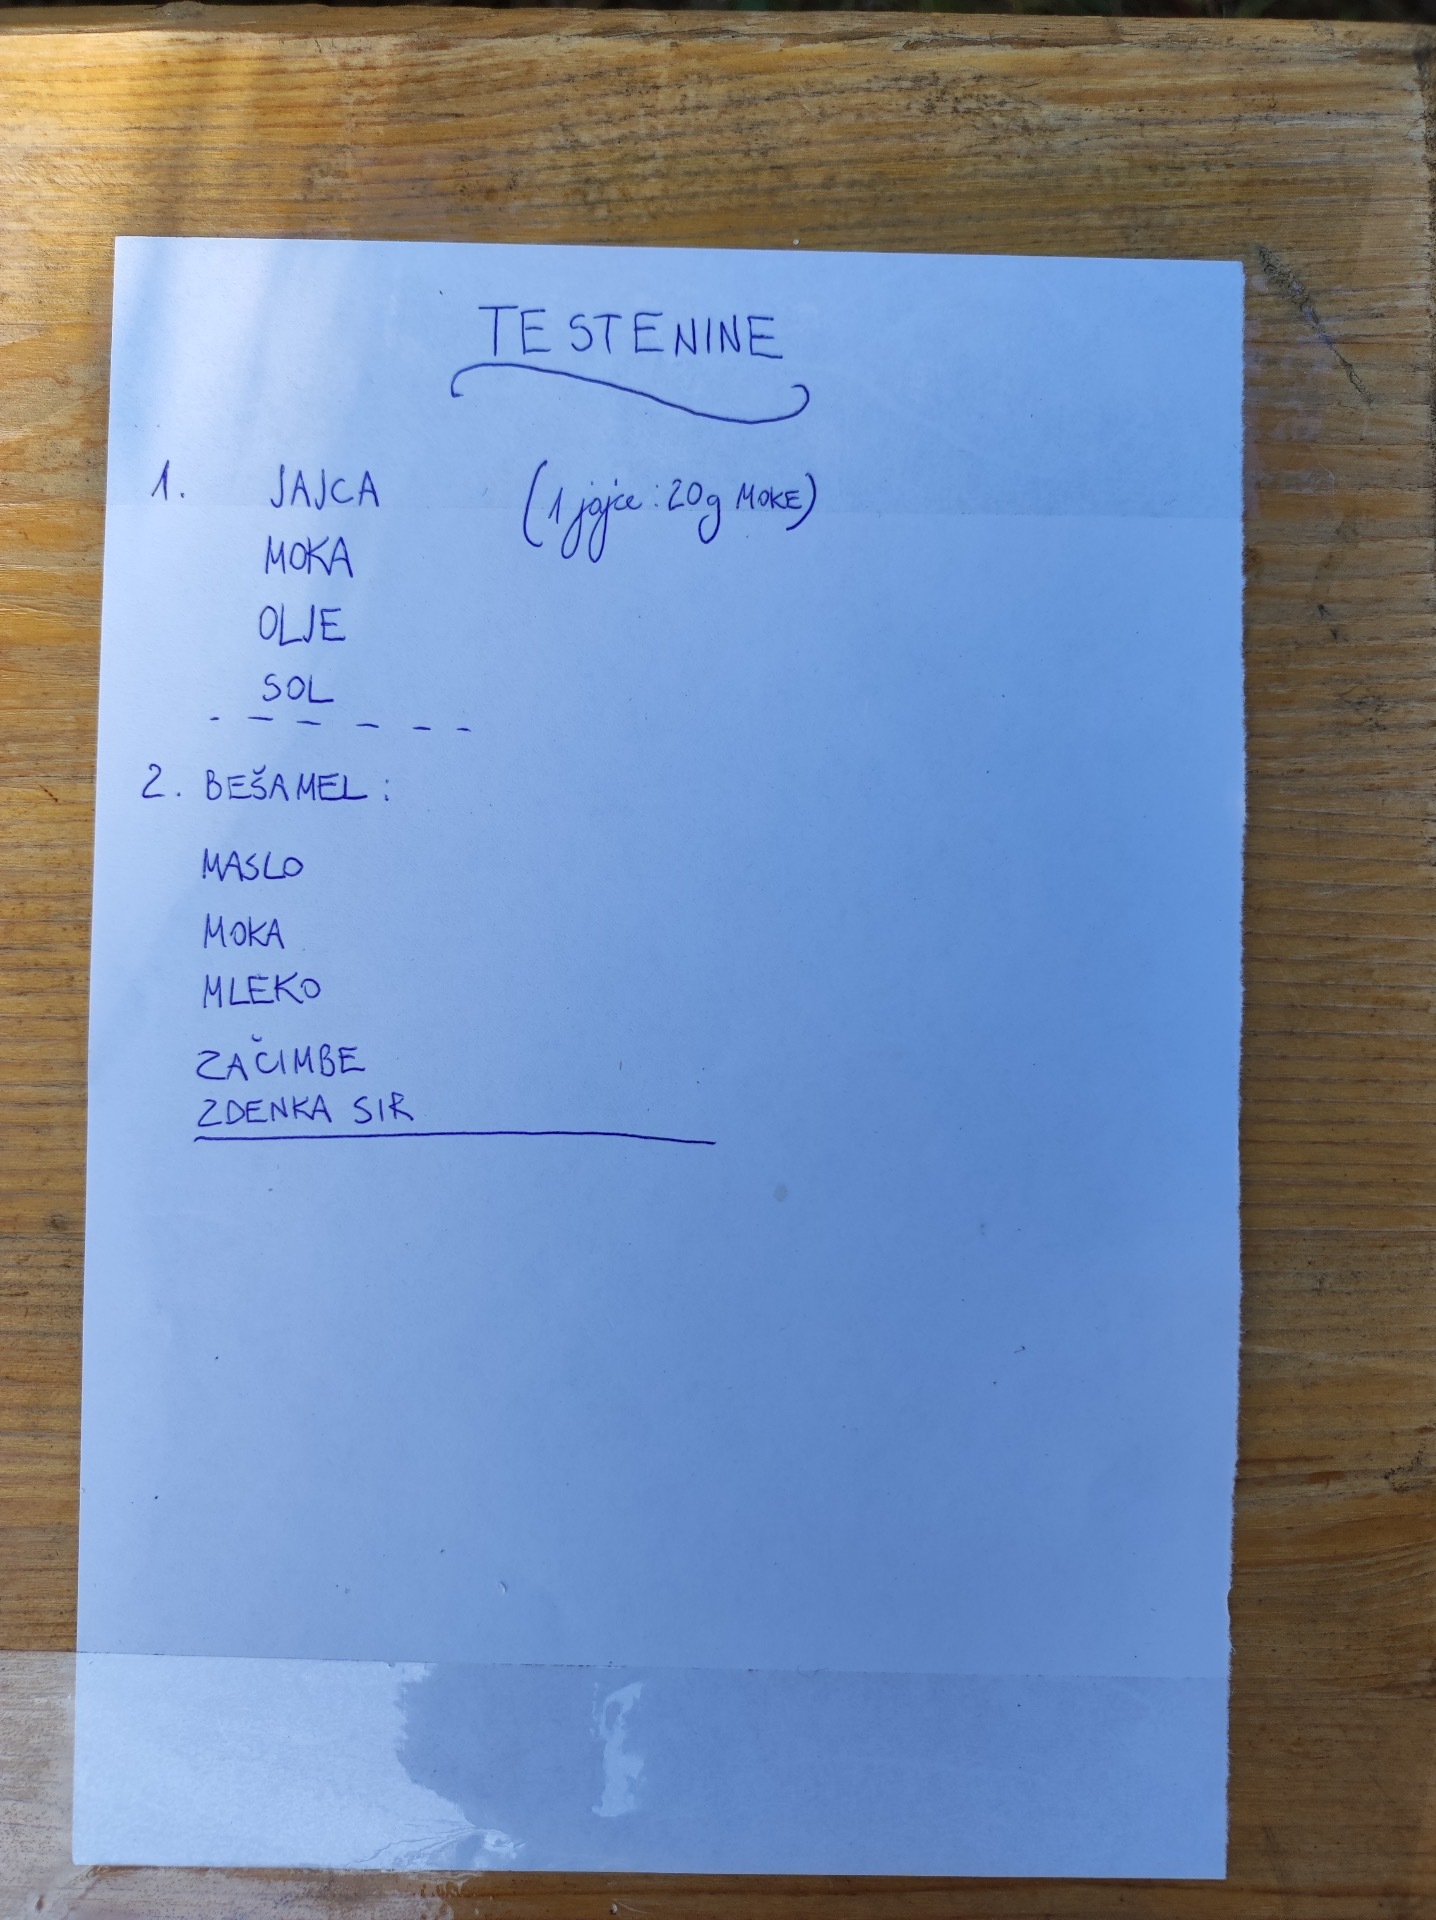 TESTENINE
1. JAJCA (1 jajce : 20g MOKE)
MOKA
OLJE
SOL
- - - - - -
2. BEŠAMEL :
MASLO
MOKA
MLEKO
ZAČIMBE
ZDENKA SIR